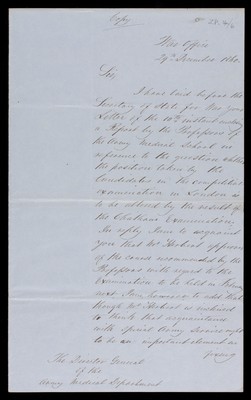 Copy
War Office
29th December 1860
Sir
I have laid before the
Secretary of State for War your
Letter of the 10th instant enclosing
a Report by the Professors of
the Army Medical School in
reference to the question whether
the position taken by the
Candidates in the competitive
examination in London is
to be altered by the result of
the Chatham Examination
In reply I am to acquaint
you that Mr Herbert approves
of the course recommended by the
Professors with regard to the
Examination to be held in
next. I am however to add that
though Mr Herbert is inclined
to think that acquaintance
with special Army Services ought
to be an important element in
The Director General
of the
Army Medical Department